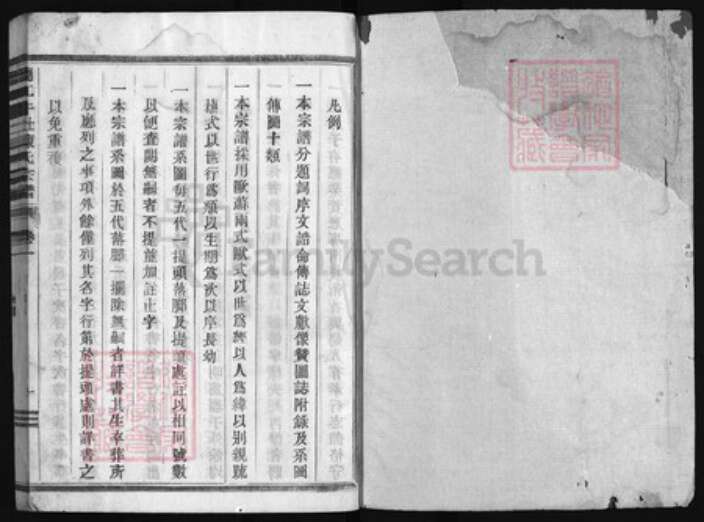 凡例
一本宗譜分題詞序文誥命傳誌文獻像贊圖誌附錄及系圖
傳圖十類
一本宗譜採用歐蘇兩式歐式以世為經以人為緯以別親疏
式以世行為順以生期為次以序長幼
一本宗譜系圖每五代一提頭落腳及提頭處註以相同號數
以便查閱無嗣者不提並加註止字
一本宗譜系圖於五代落腳一欄除無嗣者詳書其生卒葬所
及應列之事項外餘僅列其名字行第於提頭處則詳書之
以免重
FamilySearch